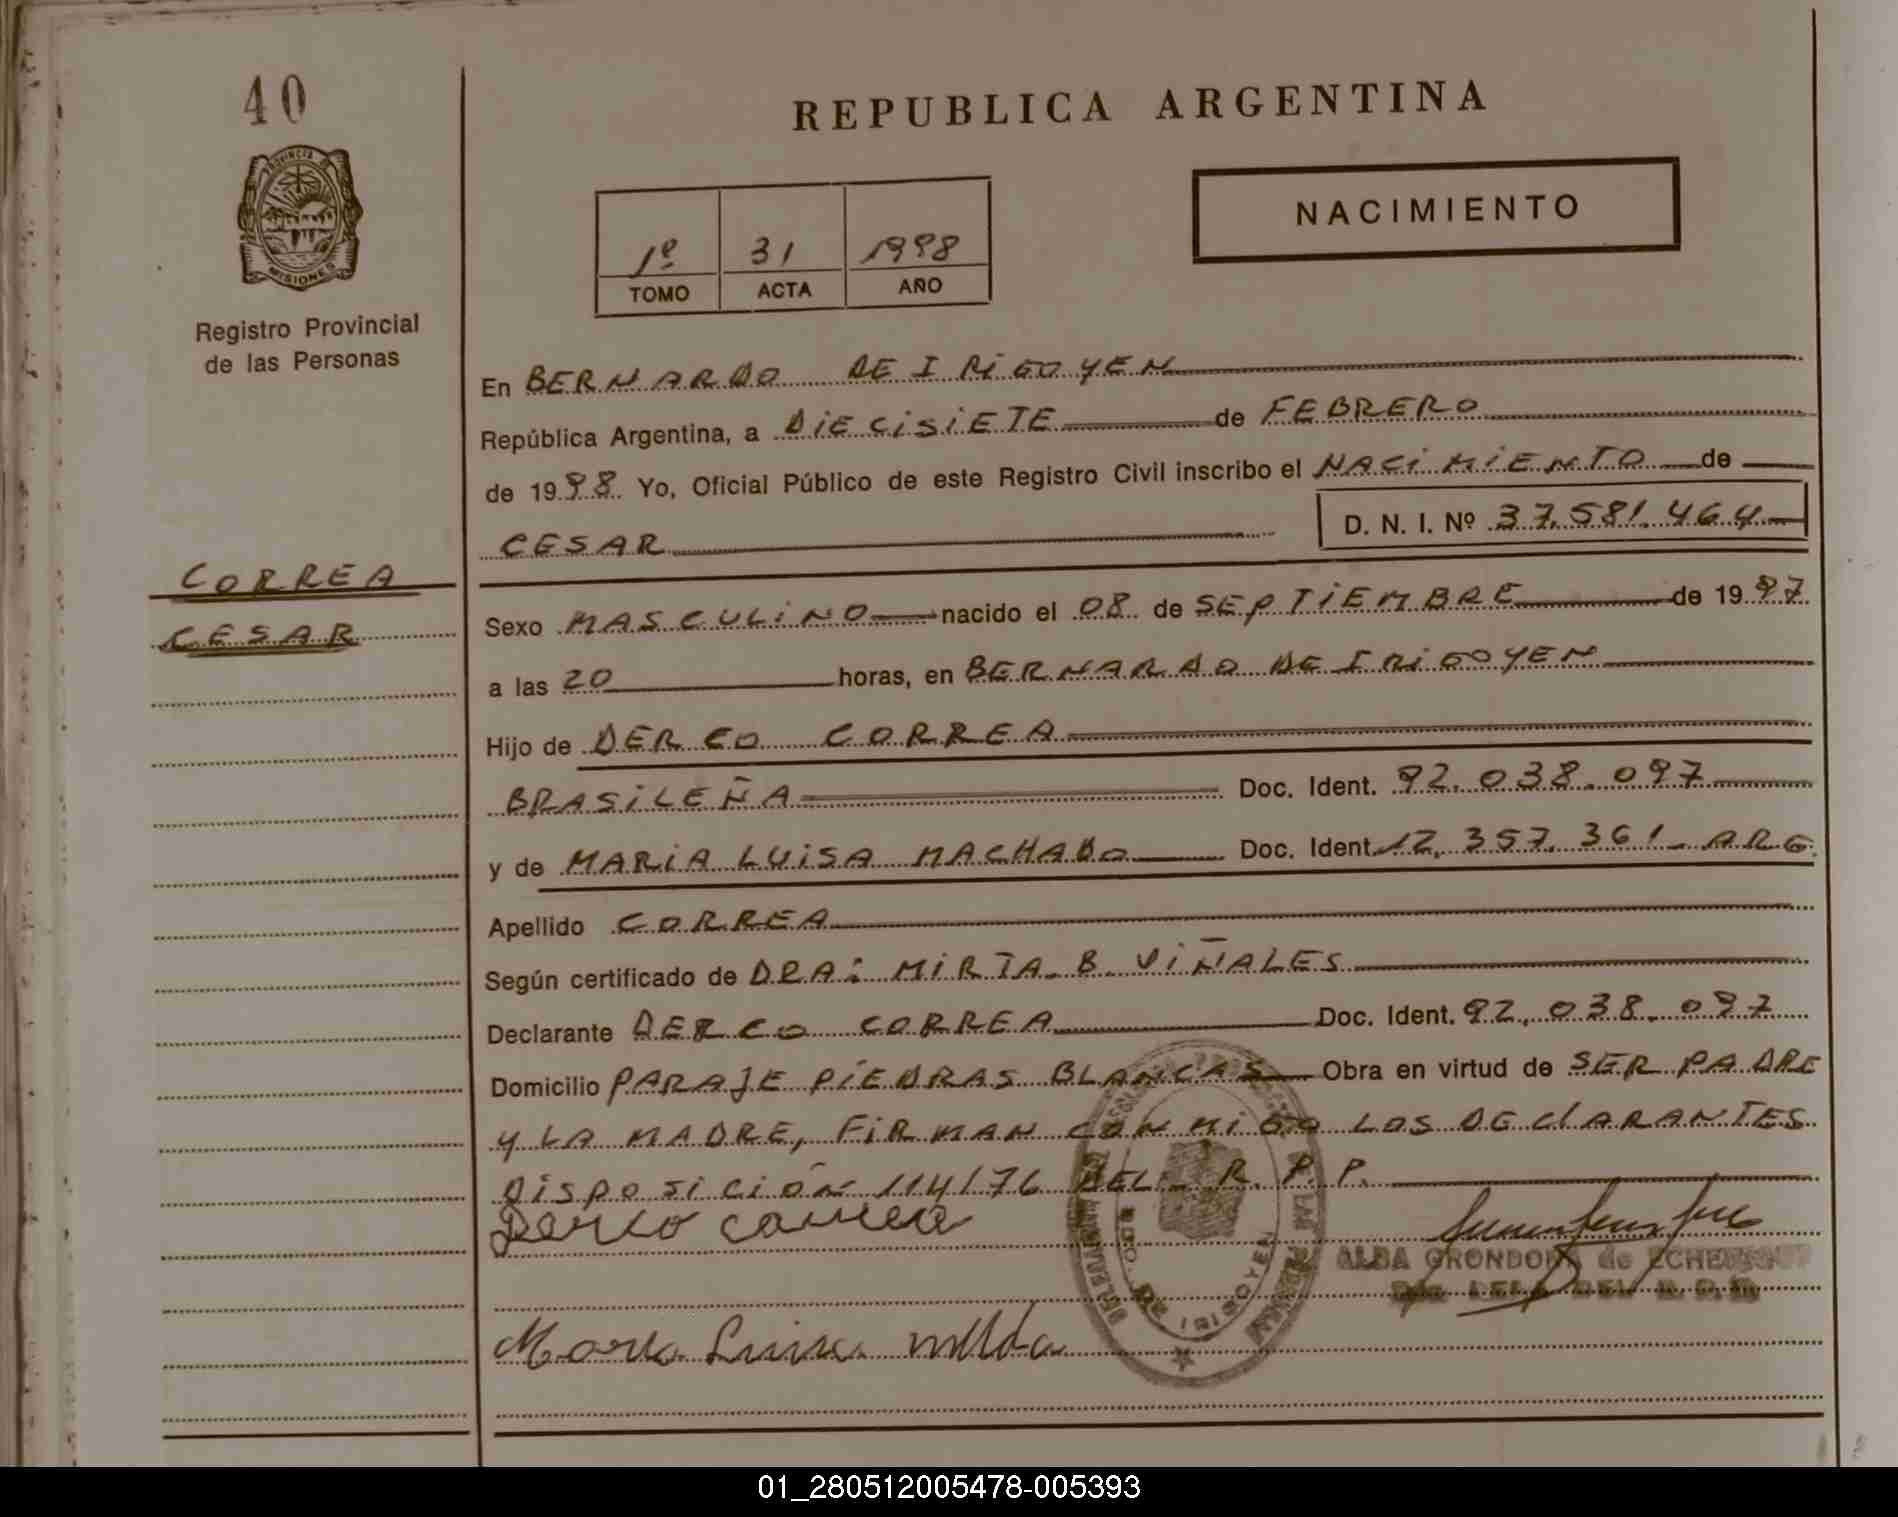 40
REPUBLICA ARGENTINA
PROVINCIA DE
MISIONES
Registro Provincial
de las Personas
1º 31 1998
TOMO ACTA AÑO
NACIMIENTO
En BERNARDO DE IRIGOYEN
República Argentina, a DIECISIETE de FEBRERO
de 1998 Yo, Oficial Público de este Registro Civil inscribo el NACIMIENTO de
CESAR D. N. I. Nº 37.581.464
CORREA
CESAR
Sexo MASCULINO nacido el 08 de SEPTIEMBRE de 1997
a las 20 horas, en BERNARDO DE IRIGOYEN
Hijo de DERCO CORREA
BRASILEÑA Doc. Ident. 92.038.097
y de MARIA LUISA MACHADO Doc. Ident. 12.357.361 - ARG.
Apellido CORREA
Según certificado de DRA: MIRTA B. VIÑALES
Declarante DERCO CORREA Doc. Ident. 92.038.097
Domicilio PARAJE PIEDRAS BLANCAS Obra en virtud de SER PADRE
Y LA MADRE, FIRMAN CONMIGO LOS DECLARANTES
DISPOSICIÓN 114/76 DEL R. P. P.
Derco Correa
ALBA GRONDONA de
BDO. DE IRIGOYEN
Maria Luisa
01_280512005478-005393